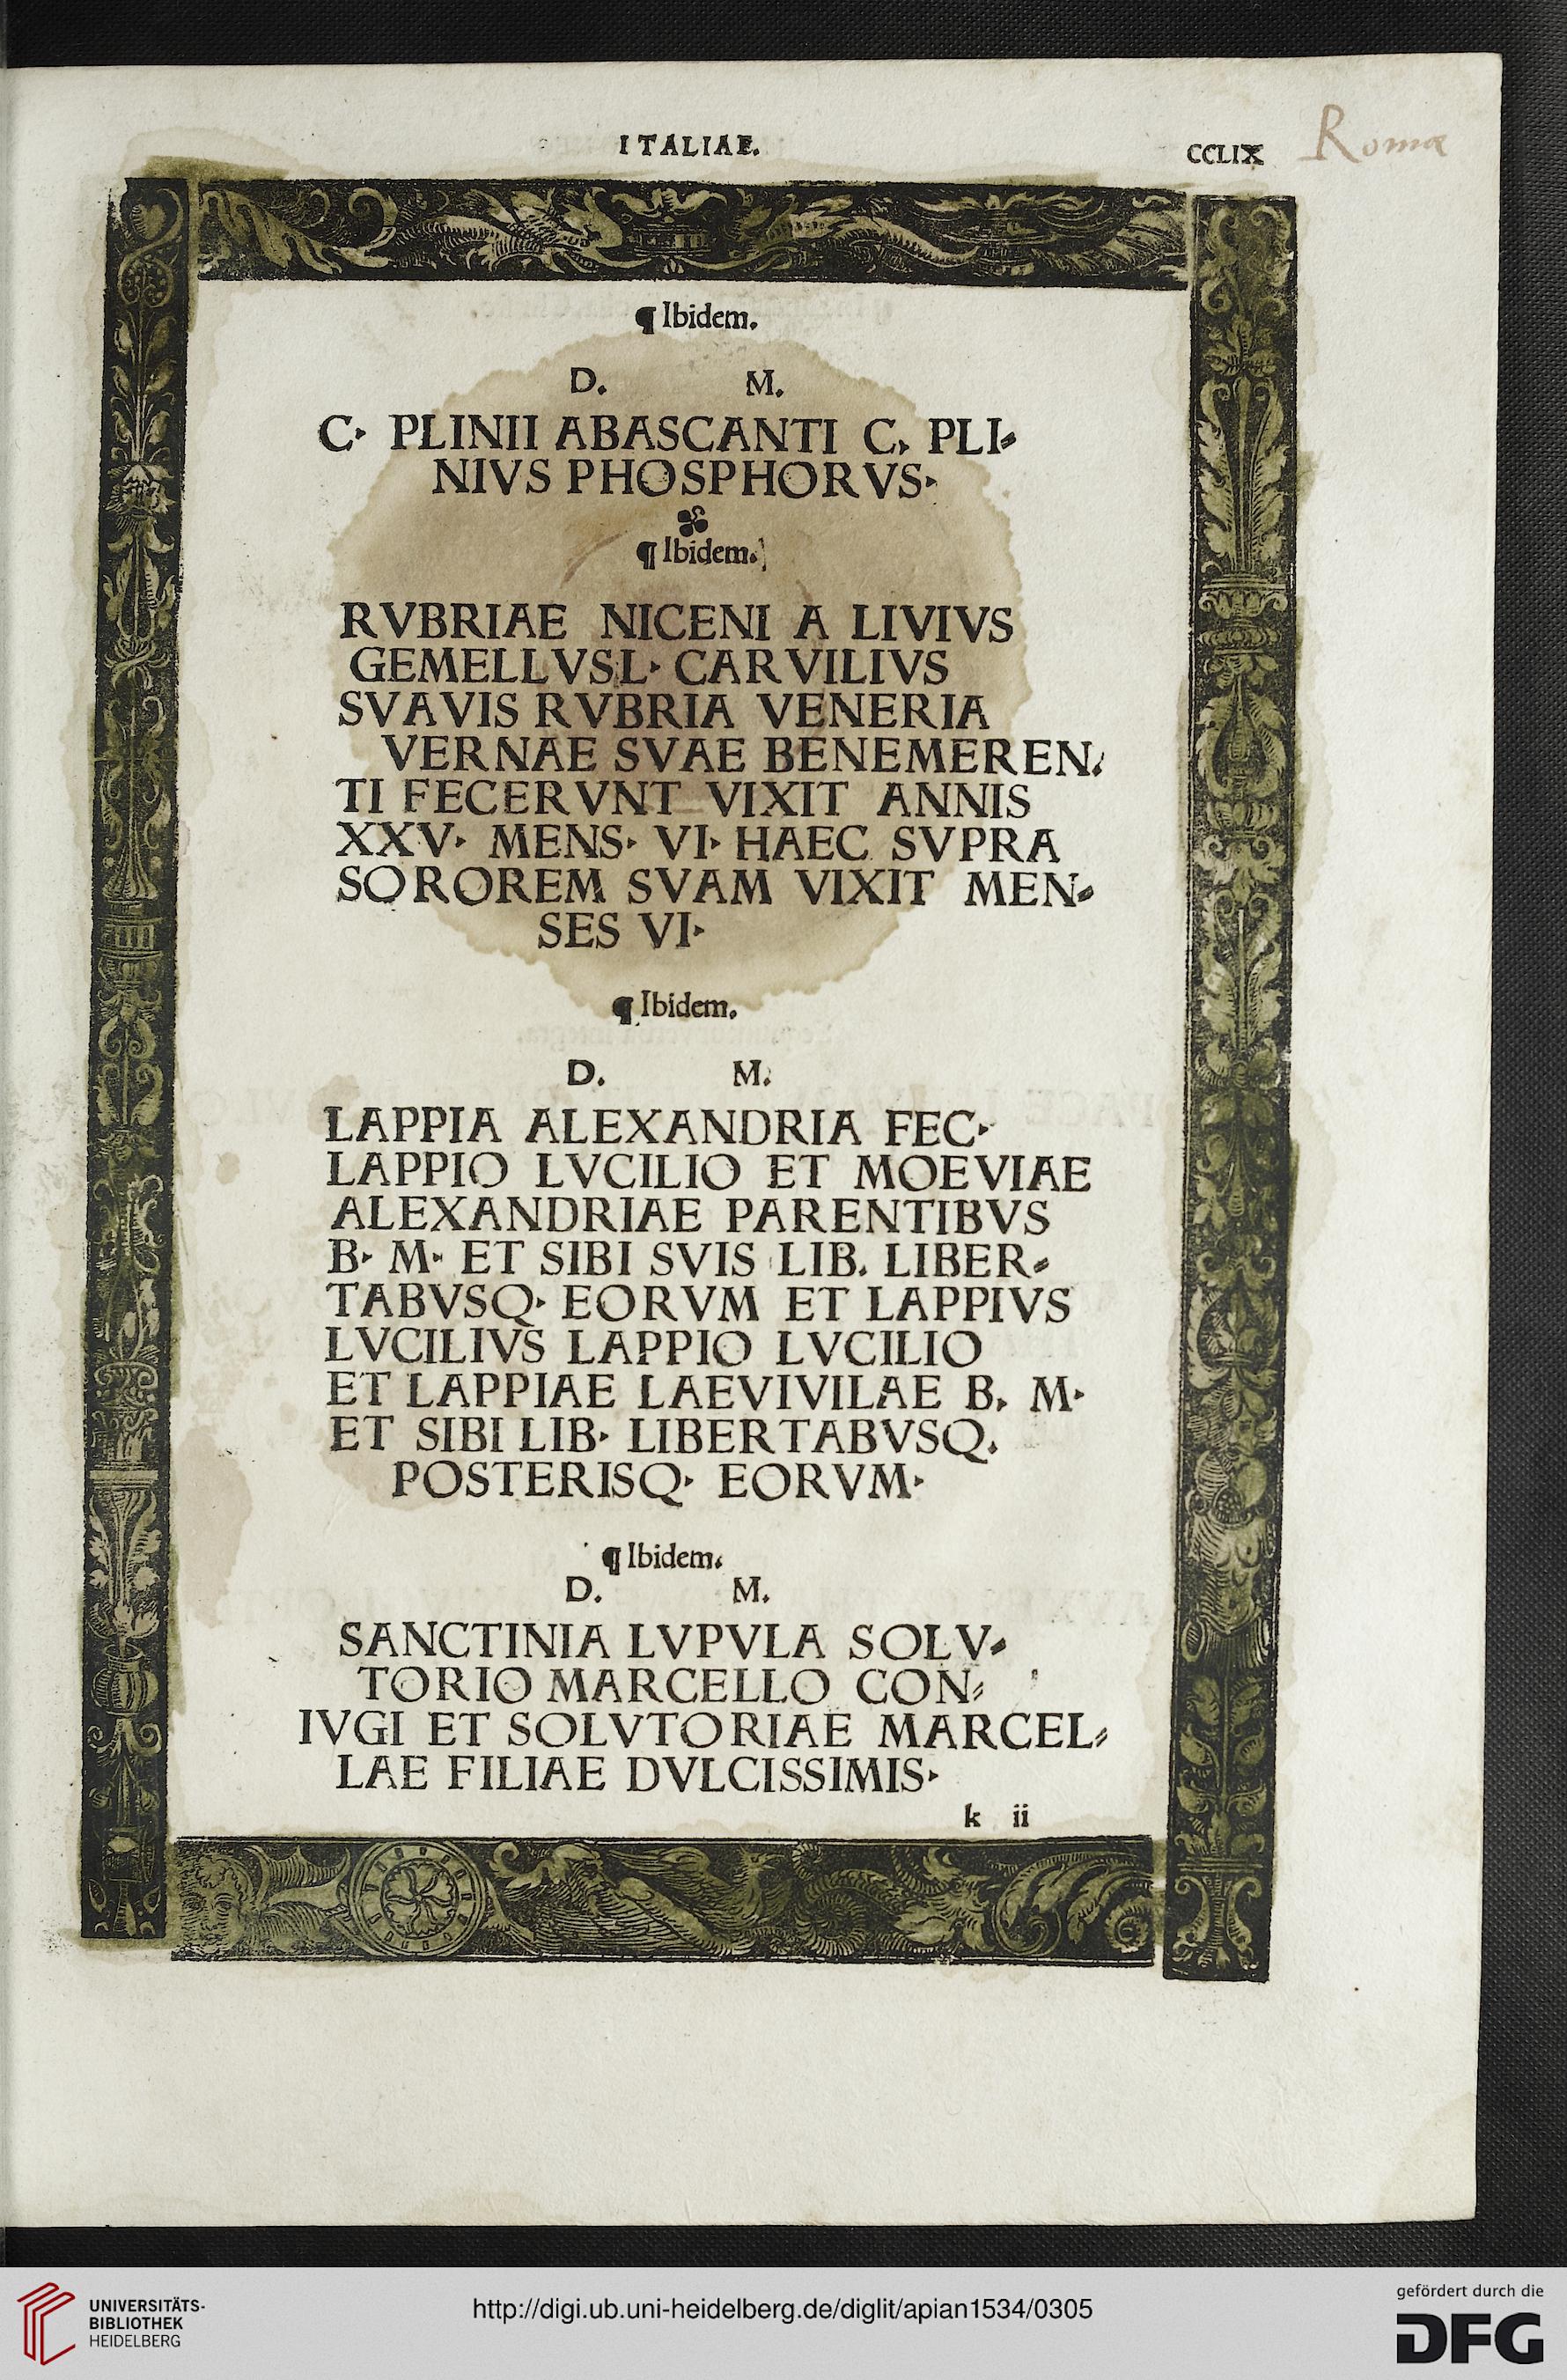 ITALIAE.
CCLIX
Roma
¶ Ibidem.
D. M.
C· PLINII ABASCANTI C. PLI⸗
NIVS PHOSPHORVS·
¶ Ibidem.
RVBRIAE NICENI A LIVIVS
GEMELLVSL· CARVILIVS
SVAVIS RVBRIA VENERIA
VERNAE SVAE BENEMEREN⸗
TI FECERVNT VIXIT ANNIS
XXV· MENS· VI· HAEC SVPRA
SOROREM SVAM VIXIT MEN⸗
SES VI·
¶ Ibidem.
D. M.
LAPPIA ALEXANDRIA FEC·
LAPPIO LVCILIO ET MOEVIAE
ALEXANDRIAE PARENTIBVS
B· M· ET SIBI SVIS LIB. LIBER⸗
TABVSQ· EORVM ET LAPPIVS
LVCILIVS LAPPIO LVCILIO
ET LAPPIAE LAEVIVILAE B. M·
ET SIBI LIB· LIBERTABVSQ.
POSTERISQ· EORVM·
¶ Ibidem.
D. M.
SANCTINIA LVPVLA SOLV⸗
TORIO MARCELLO CON⸗
IVGI ET SOLVTORIAE MARCEL⸗
LAE FILIAE DVLCISSIMIS·
k ii
UNIVERSITÄTS-
BIBLIOTHEK
HEIDELBERG
http://digi.ub.uni-heidelberg.de/diglit/apian1534/0305
gefördert durch die
DFG